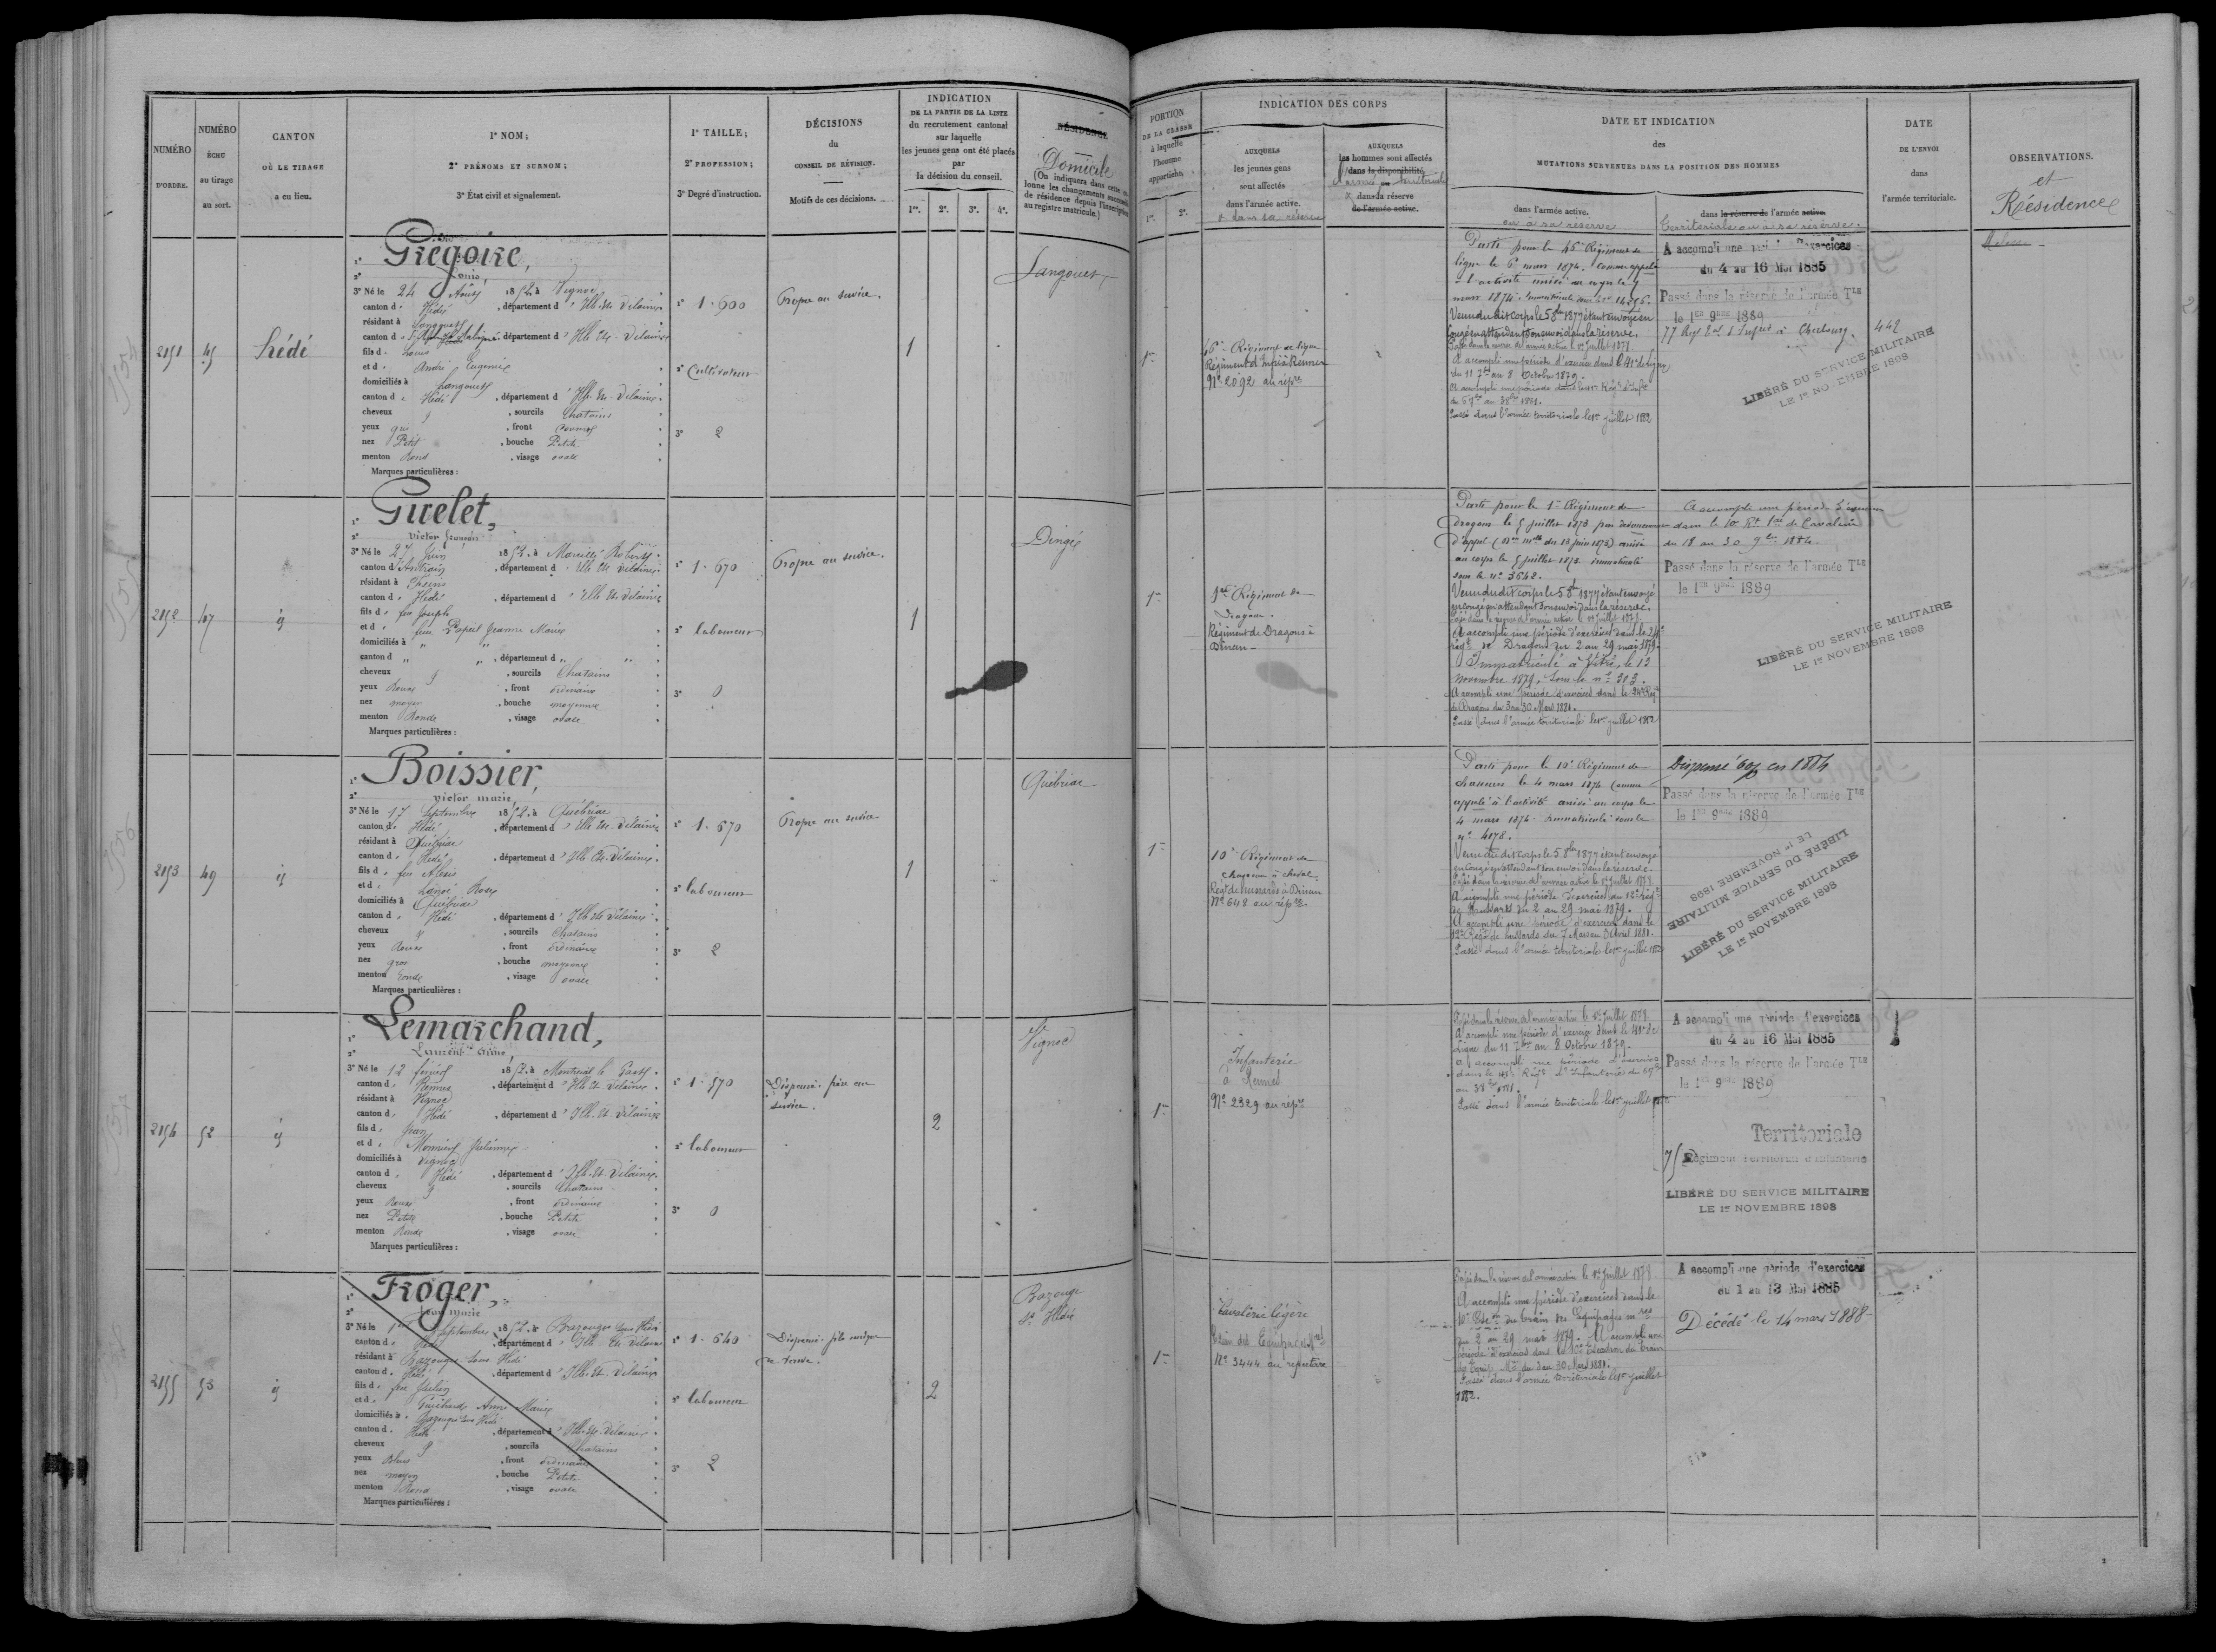 NUMÉRO
D'ORDRE.
NUMÉRO
ÉCHU
au tirage
au sort.
CANTON
OÙ LE TIRAGE
a eu lieu.
1° NOM;
2° PRÉNOMS ET SURNOM;
3° État civil et signalement.
1° TAILLE;
2° PROFESSION;
3° Degré d'instruction.
DÉCISIONS
du
CONSEIL DE RÉVISION.
Motifs de ces décisions.
INDICATION
DE LA PARTIE DE LA LISTE
du recrutement cantonal
sur laquelle
les jeunes gens ont été placés
par
la décision du conseil.
1re. 2e. 3e. 4e.
RÉSIDENCE
Domicile
(On indiquera dans cette co-
lonne les changements successifs
de résidence depuis l'inscription
au registre matricule.)
PORTION
DE LA CLASSE
à laquelle
l'homme
appartient.
1re. 2e.
INDICATION DES CORPS
AUXQUELS
les jeunes gens
sont affectés
dans l'armée active.
& dans sa réserve
AUXQUELS
les hommes sont affectés
dans la disponibilité
l'armée territoriale
& dans la réserve
de l'armée active.
DATE ET INDICATION
des
MUTATIONS SURVENUES DANS LA POSITION DES HOMMES
dans l'armée active.
ou à sa réserve
dans la réserve de l'armée active.
Territoriale ou à sa réserve.
DATE
DE L'ENVOI
dans
l'armée territoriale.
OBSERVATIONS.
et
Résidence
2151
45
Hédé
1° Grégoire,
2° Louis,
3° Né le 24 Août 1852 à Vignoc
canton d Hédé, département d'Ille-et-Vilaine
résidant à Langouet
département d'Ille-et-Vilaine
fils d Louis
et d André Eugénie
domiciliés à Langouet
canton d Hédé, département d'Ille-et-Vilaine
cheveux, sourcils Chatains
yeux gris, front
nez Petit, bouche Petite
menton Rond, visage ovale
Marques particulières :
1° 1.600
2° Cultivateur
3° 2
Propre au service.
1
Langouet
1re
46e Régiment de ligne
Régiment d'Infie à Rennes
No 2092 au répre
Parti pour le 46e Régiment de
ligne le 6 mars 1874. Comme appelé
à l'activité arrivé au corps le 7
mars 1874. Immatriculé sous le no 14256.
Venu dudit corps le 5 8bre 1877 étant envoyé en
congé en attendant son envoi dans la réserve.
Passé dans la réserve de l'armée active le 1er Juillet 1878.
A accompli une période d'exercice dans le 41e de ligne
du 11 7bre au 8 Octobre 1879.
Passé dans l'armée territoriale le 1er juillet 1882
A accompli une période d'exercices
du 4 au 16 Mai 1885
Passé dans la réserve de l'armée Tle
le 1er 9bre 1889
77 Reg Tal d'Infie à Cherbourg.
442
LIBÉRÉ DU SERVICE MILITAIRE
LE 1er NOVEMBRE 1898
2152
47
id
1° Guelet,
2° Victor François
3° Né le 27 Juin 1852 à Marcillé Robert
canton d'Antrain, département d'Ille-et-Vilaine
résidant à
canton d Hédé, département d'Ille-et-Vilaine
fils d feu Joseph
et d feue Jeanne Marie
domiciliés à "
canton d ", département d "
cheveux, sourcils Chatains
yeux Roux, front ordinaire
nez moyen, bouche moyenne
menton Ronde, visage ovale
Marques particulières :
1° 1.670
2° laboureur
3° 0
Propre au service.
1
Dingé
1re
1er Régiment de
Dragons.
Régiment de Dragons à
Dinan
Parti pour le 1er Régiment de
dragons le 5 juillet 1873 par devancement
d'appel (Don mlle du 13 juin 1873) arrivé
au corps le 5 juillet 1873 immatriculé
sous le no 3642.
Venu dudit corps le 5 8bre 1877 étant envoyé
en congé en attendant son envoi dans la réserve.
Passé dans la réserve de l'armée active le 1er Juillet 1878.
A accompli une période d'exercices dans le 24e
régt de Dragons du 2 au 29 mai 1879.
Immatriculé à Vitré, le 13
Novembre 1879, sous le no 313.
A accompli une période d'exercices dans le 24e Regt
de Dragons du 3 au 30 Mars 1881.
Passé dans l'armée territoriale le 1er juillet 1882
A accompli une période d'exercices
dans le 10e Rt Tal de Cavalerie
du 18 au 30 9bre 1884.
Passé dans la réserve de l'armée Tle
le 1er 9bre 1889
LIBÉRÉ DU SERVICE MILITAIRE
LE 1er NOVEMBRE 1898
2153
49
id
1° Boissier,
2° Victor Marie,
3° Né le 17 Septembre 1852 à Québriac
canton d Hédé, département d'Ille-et-Vilaine
résidant à Québriac
canton d Hédé, département d'Ille-et-Vilaine
fils d feu Alexis
et d Rose
domiciliés à Québriac
canton d Hédé, département d'Ille-et-Vilaine
cheveux, sourcils Chatains
yeux Roux, front ordinaire
nez gros, bouche moyenne
menton ronde, visage ovale
Marques particulières :
1° 1.670
2° laboureur
3° 2
Propre au service
1
Québriac
1re
10e Régiment de
chasseurs à cheval
Régt de hussards à Dinan
No 648 au répre
Parti pour le 10e Régiment de
chasseurs le 4 mars 1874 comme
appelé à l'activité arrivé au corps le
4 mars 1874. Immatriculé sous le
no 4178.
Venu dudit corps le 5 8bre 1877 étant envoyé
en congé en attendant son envoi dans la réserve.
Passé dans la réserve de l'armée active le 1er Juillet 1878.
A accompli une période d'exercices au 12e régt
de Hussards du 2 au 29 mai 1879.
A accompli une période d'exercices dans le
12e Regt de hussards du 7 Mars au 3 Avril 1881.
Passé dans l'armée territoriale le 1er juillet 1882
Dispensé en 1884
Passé dans la réserve de l'armée Tle
le 1er 9bre 1889
LIBÉRÉ DU SERVICE MILITAIRE
LE 1er NOVEMBRE 1898
LIBÉRÉ DU SERVICE MILITAIRE
LE 1er NOVEMBRE 1898
2154
52
id
1° Lemarchand,
2° Laurent Aimé,
3° Né le 12 février 1852 à Montreuil le Gast
canton d Rennes, département d'Ille-et-Vilaine
résidant à Vignoc
canton d Hédé, département d'Ille-et-Vilaine
fils d Jean
et d Monnier Julienne
domiciliés à Vignoc
canton d Hédé, département d'Ille-et-Vilaine
cheveux, sourcils Chatains
yeux Roux, front ordinaire
nez Petit, bouche Petite
menton Ronde, visage ovale
Marques particulières :
1° 1.570
2° laboureur
3° 0
Dispensé. frère au
service.
2
Vignoc
1re
Infanterie
à Rennes
No 2329 au répre
Passé dans la réserve de l'armée active le 1er Juillet 1878.
A accompli une période d'exercice dans le 41e de
Ligne du 11 7bre au 8 Octobre 1879.
A accompli une période d'exercices
dans le 41e Régt d'Infanterie du 6 7bre
au 3 8bre 1881.
Passé dans l'armée territoriale le 1er juillet 1882
A accompli une période d'exercices
du 4 au 16 Mai 1885
Passé dans la réserve de l'armée Tle
le 1er 9bre 1889
Territoriale
75 Régiment Territorial d'Infanterie
LIBÉRÉ DU SERVICE MILITAIRE
LE 1er NOVEMBRE 1898
2155
53
id
1° Froger,
2° Jean Marie
3° Né le 1er Septembre 1852 à Bazouges sous Hédé
canton d Hédé, département d'Ille-et-Vilaine
résidant à Bazouges sous Hédé
canton d Hédé, département d'Ille-et-Vilaine
fils d feu Julien
et d Guichard Anne Marie
domiciliés à Bazouges sous Hédé
canton d Hédé, département d'Ille-et-Vilaine
cheveux, sourcils Chatains
yeux Bleus, front ordinaire
nez moyen, bouche Petite
menton Rond, visage ovale
Marques particulières :
1° 1.640
2° laboureur
3° 2
Dispensé. fils unique
de veuve.
2
Bazouge
Ss Hédé
1re
Cavalerie légère
Train des Equipages Mres
No 3444 au répertoire
Passé dans la réserve de l'armée active le 1er Juillet 1878.
A accompli une période d'exercices dans le
10e Esc. du train des Equipages mres
du 2 au 29 mai 1879. A accompli une
période d'exercices dans le 10e Escadron du Train
des Equip. Mres du 3 au 30 Mars 1881.
Passé dans l'armée territoriale le 1er juillet
1882.
A accompli une période d'exercices
du 1 au 13 Mai 1885
Décédé le 14 mars 1888